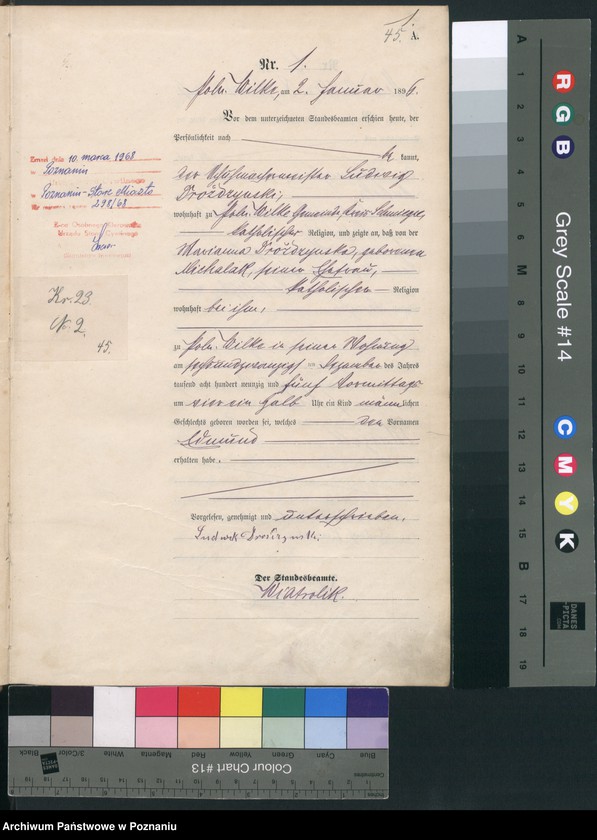 1.
45. A.
Nr. 1.
Poln. Wilke, am 2. Januar 1896.
Vor dem unterzeichneten Standesbeamten erschien heute, der
Persönlichkeit nach
be kannt,
der Ludwig
Drożdzynski,
wohnhaft zu Poln. Wilke
katholischer Religion, und zeigte an, daß von der
Marianna Drożdzynska, geborenen
Michalak, seiner Ehefrau,
katholischen Religion
wohnhaft bei ihm,
zu Poln. Wilke in seiner Wohnung
am sechsundzwanzigsten Dezember des Jahres
tausend acht hundert neunzig und fünf Vormittags
um vier ein halb Uhr ein Kind männlichen
Geschlechts geboren worden sei, welches den Vornamen
Edmund
erhalten habe.
Vorgelesen, genehmigt und unterschrieben.
Ludwik
Der Standesbeamte.
Wiatrolik.
10. marca 1968
Poznaniu
Poznaniu-Stare Miasto
298/68
Kr. 23
N. 2.
45.
A 1 2 3 4 5 6 M 8 9 10 11 12 13 14 15 B 17 18 19
R
G
B
Grey Scale #14
C
M
Y
K
DANES
-PICTA
.COM
Blue
Cyan
Green
Yellow
Red
Magenta
White
3/Color
Black
Colour Chart #13
Centimetres
Inches
Archiwum Państwowe w Poznaniu